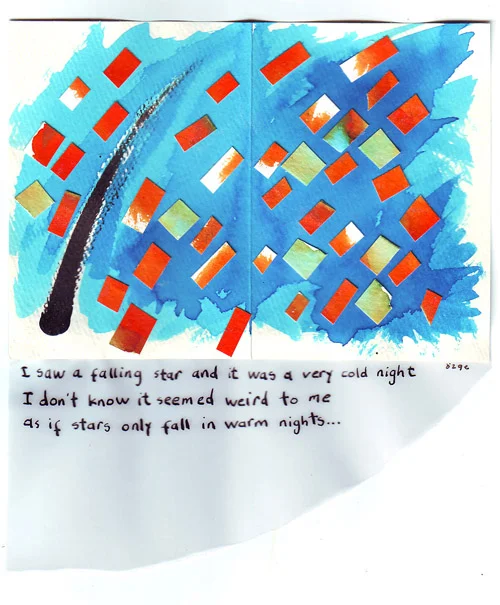 I saw a falling star and it was a very cold night
I don't know it seemed weird to me
as if stars only fall in warm nights...